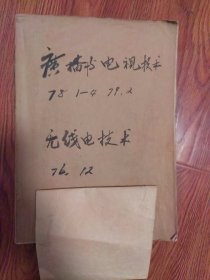 廣播与电视技术
78 1-4 79.2
无线电技术
76.12